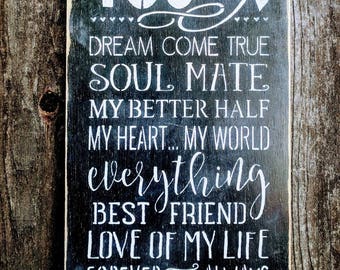 DREAM COME TRUE
SOUL MATE
MY BETTER HALF
MY HEART... MY WORLD
everything
BEST FRIEND
LOVE OF MY LIFE